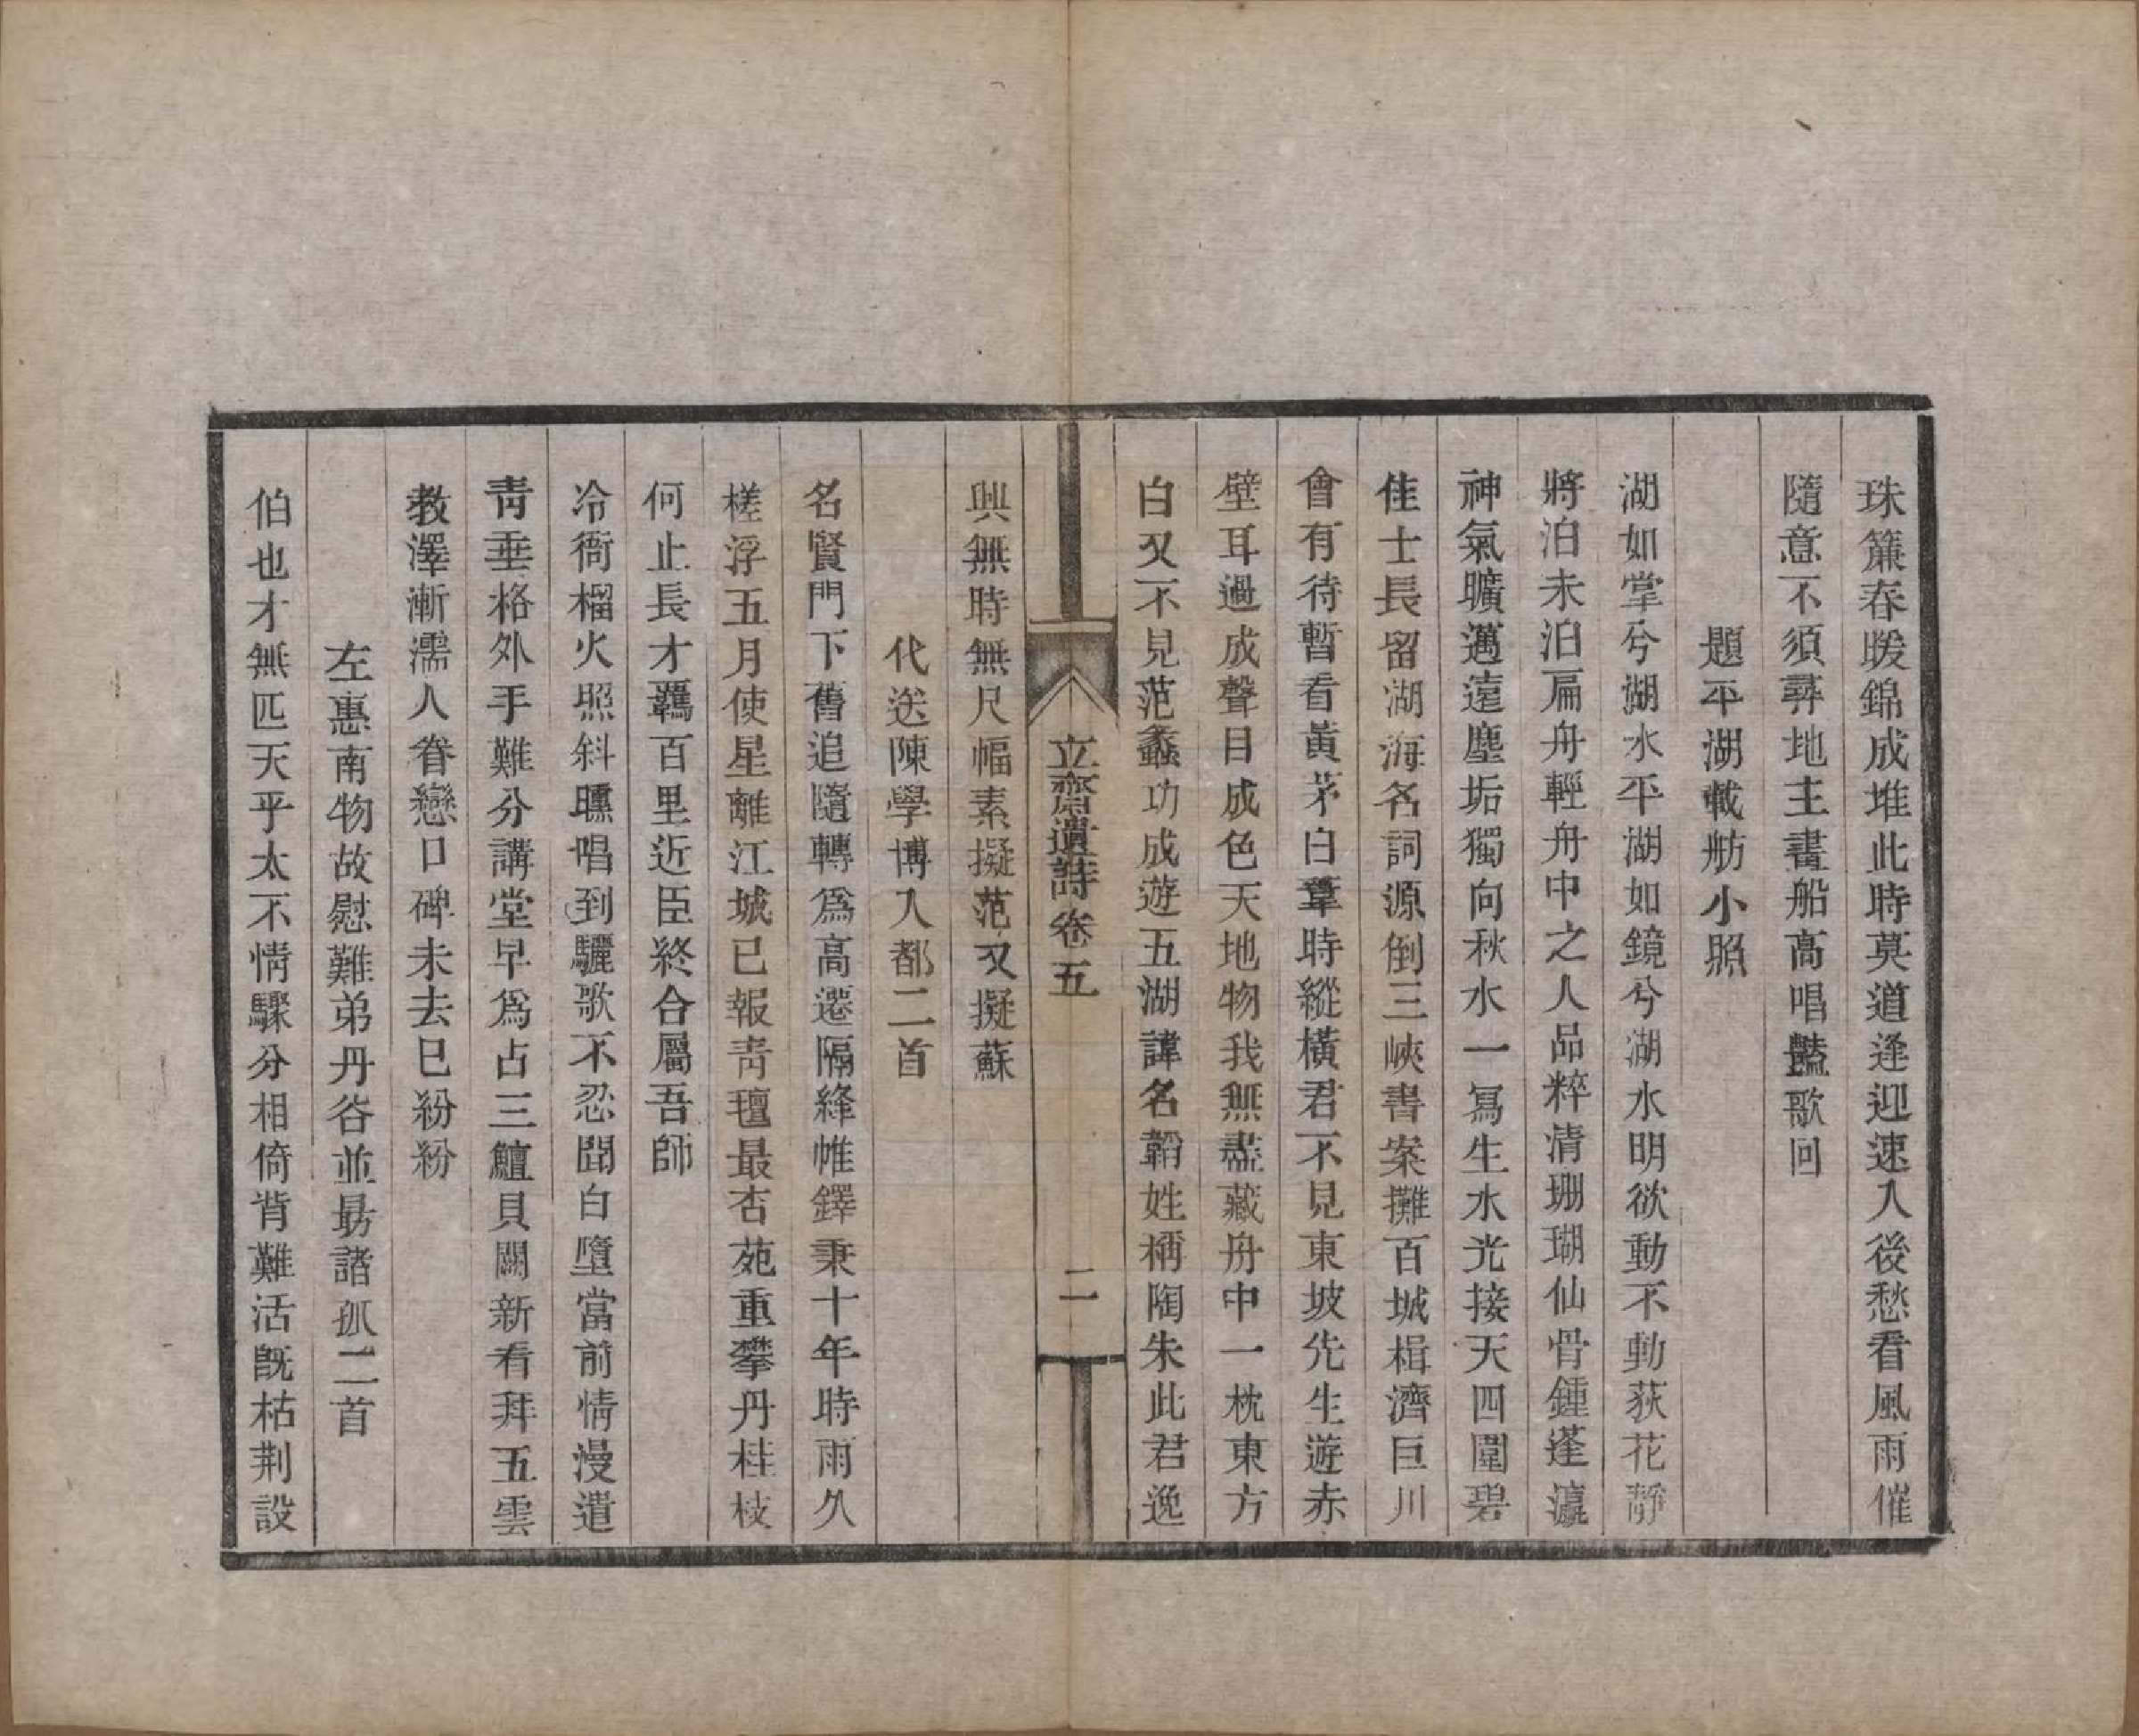 珠簾春暖錦成堆此時莫道逢迎速人後愁看風雨催
隨意不須尋地主畫船高唱豔歌回
題平湖載舫小照
湖如掌兮湖水平湖如鏡兮湖水明欲動不動荻花靜
將泊未泊扁舟輕舟中之人品粹清珊瑚仙骨鍾蓬瀛
神氣曠邁遠塵垢獨向秋水一寫生水光接天四圍碧
佳士長留湖海名詞源倒三峽書案攤百城楫濟巨川
會有待暫看黃茅白葦時縱橫君不見東坡先生遊赤
壁耳過成聲目成色天地物我無盡藏舟中一枕東方
白又不見范蠡功成遊五湖諱名韜姓稱陶朱此君逸
立齋遺詩卷五
二
興無時無尺幅素擬范又擬蘇
代送陳學博入都二首
名賢門下舊追隨轉爲高遷隔絳帷鐸秉十年時雨久
槎浮五月使星離江城已報靑氈最杏苑重攀丹桂枝
何止長才羈百里近臣終合屬吾師
冷衙榴火照斜曛唱到驪歌不忍聞白墮當前情漫遣
靑垂格外手難分講堂早爲占三鱣貝闕新看拜五雲
教澤漸濡人眷戀口碑未去已紛紛
左惠南物故慰難弟丹谷並勗諸孤二首
伯也才無匹天乎太不情驟分相倚背難活旣枯荆設